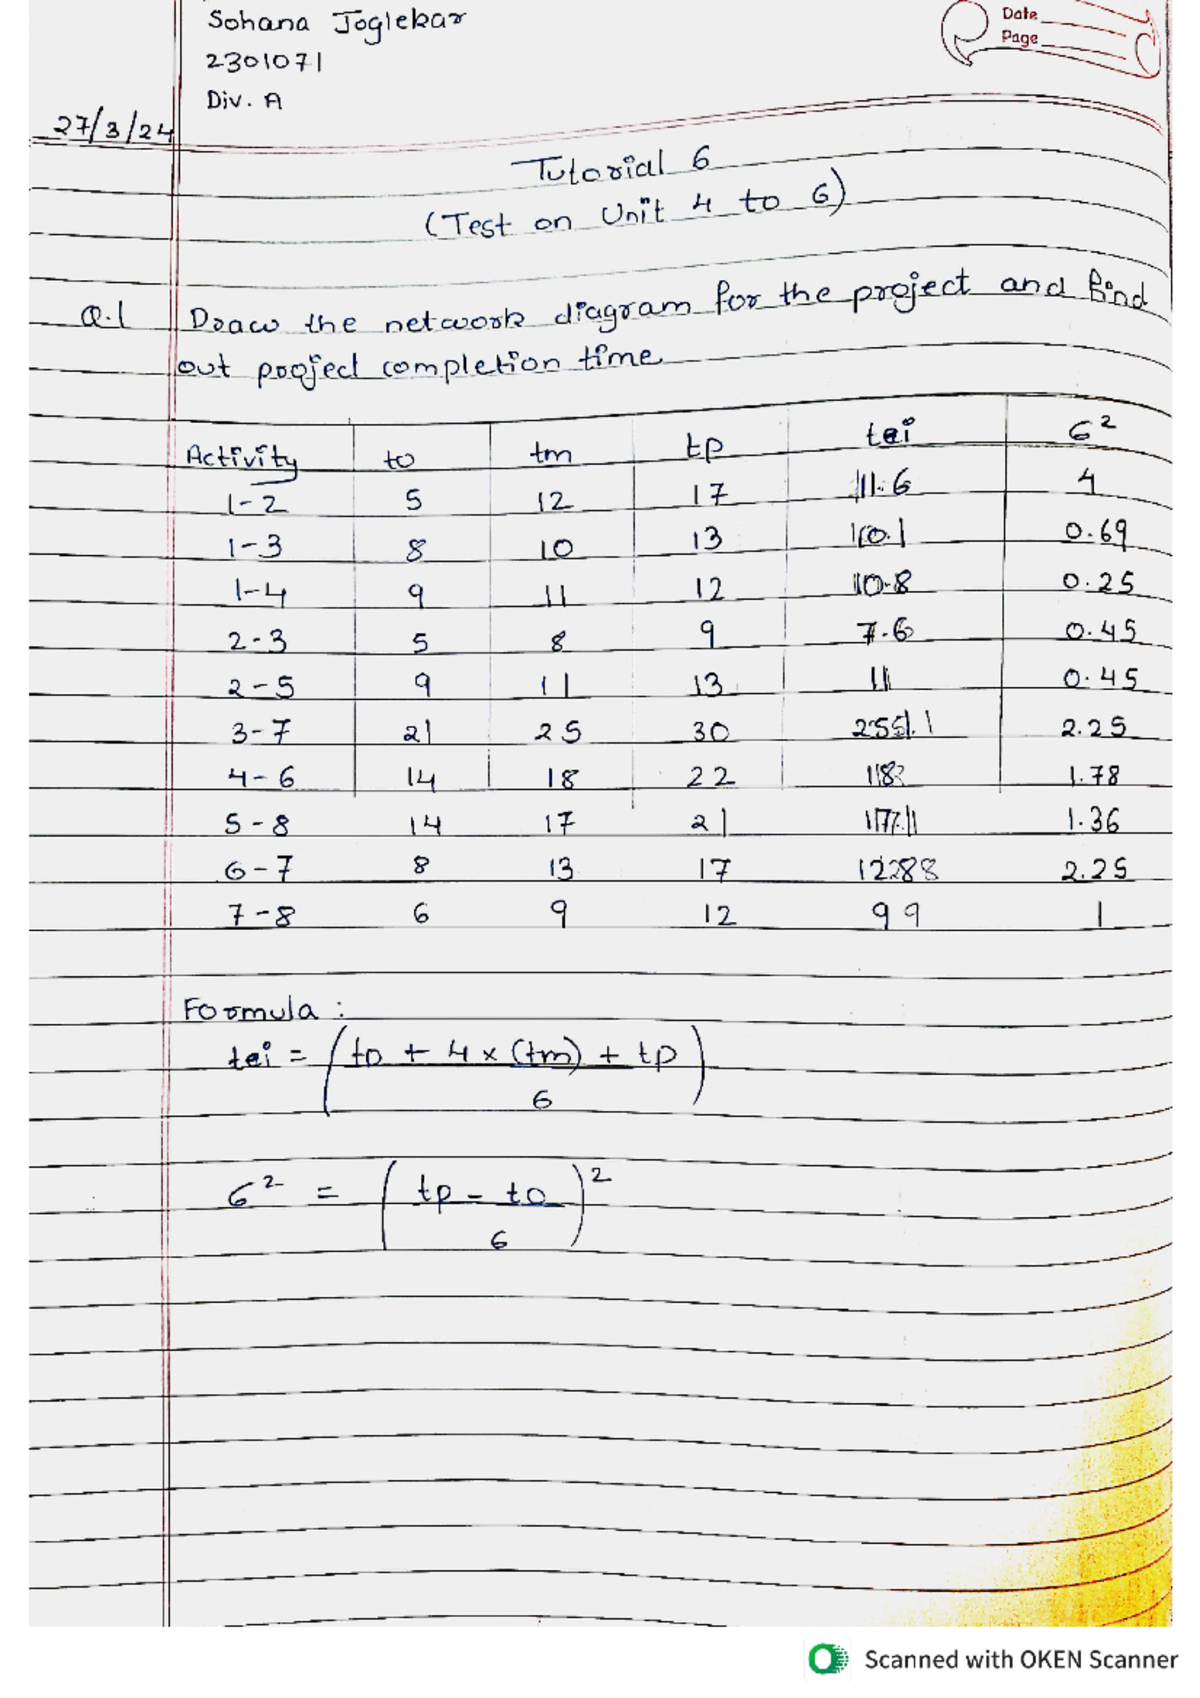 Sohana Joglekar
Date
Page
2301071
Div. A
27/3/24
Tutorial 6
(Test on Unit 4 to 6)
Q.1 Draw the network diagram for the project and find
out project completion time
Activity to tm tp tei 6²
1-2 5 12 17 11.6 4
1-3 8 10 13 10.1 0.69
1-4 9 11 12 10.8 0.25
2-3 5 8 9 7.6 0.45
2-5 9 11 13 11 0.45
3-7 21 25 30 2.25
4-6 14 18 22 1.78
5-8 14 17 21 1.36
6-7 8 13 17 2.25
7-8 6 9 12 9 9 1
Formula :
tei = (to + 4 x (tm) + tp)
6
6² = (tp - to)²
6
Scanned with OKEN Scanner